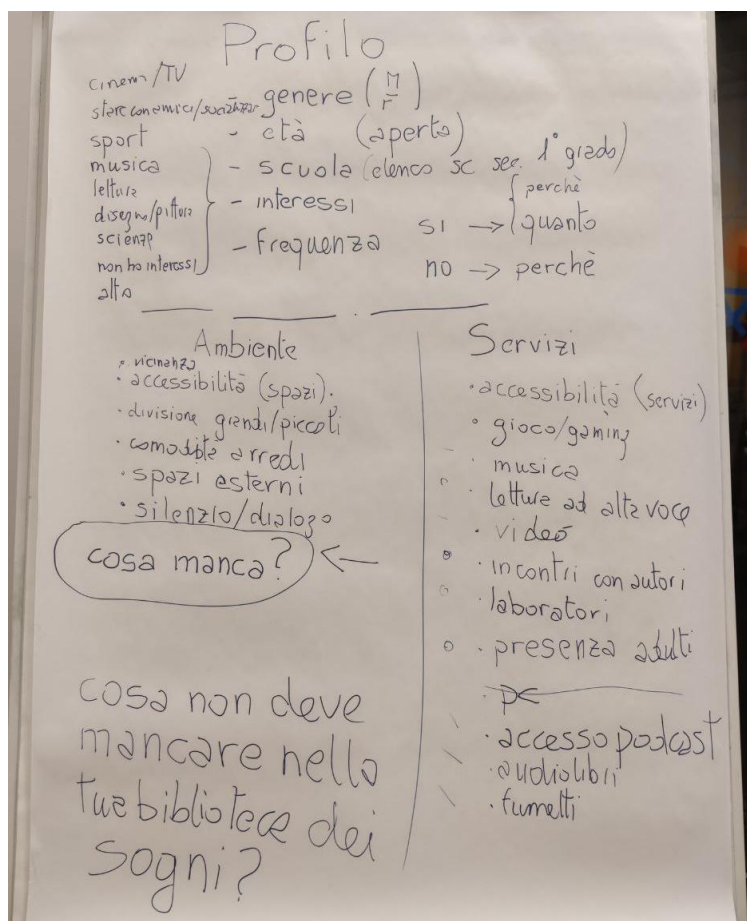 Profilo
cinem/TV
stare con amici/
sport
musica
lettura
disegno/pittura
scienze
non ho interessi
altro
genere (M/F)
- età (aperta)
- scuola (elenco sc sec. 1° grado)
- interessi
- frequenza
si → perchè
quanto
no → perchè
Ambiente
• vicinanza
• accessibilità (spazi).
• divisione grandi/piccoli
• comodità arredi
• spazi esterni
• silenzio/dialogo
cosa manca? ←
cosa non deve
mancare nella
tua biblioteca dei
sogni?
Servizi
• accessibilità (servizi)
• gioco/gaming
• musica
• letture ad alta voce
• video
• incontri con autori
• laboratori
• presenza adulti
• pc
• accesso podcast
• audiolibri
• fumetti